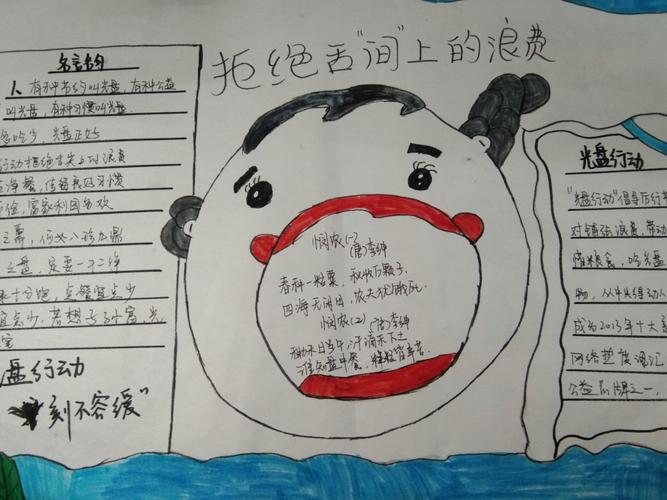 拒绝舌"间"上的浪费
名言书的
1、有种节约叫光盘，有种公益
叫光盘，有种习惯叫光盘。
吃少，光盘正好
行动拒绝舌尖上的浪费
净餐，传留良好习惯
俭，富家利国多欢
之需，何必八珍九鼎
之盘，定要一干二净
十分饱，点餐宜点少
宜点少，若想子孙富，光
盘行动
刻不容缓"
悯农(一)
(唐)李绅
春种一粒粟，秋收万颗子。
四海无闲田，农夫犹饿死。
悯农(二)
(唐)李绅
锄禾日当午，汗滴禾下土
谁知盘中餐，粒粒皆辛苦
光盘行动
"光盘行动"倡导厉行节
对铺张浪费，带动
惜粮食，吃光盘
物，从中央得
成为2013年十大
网络热度词汇
公益品牌之一，